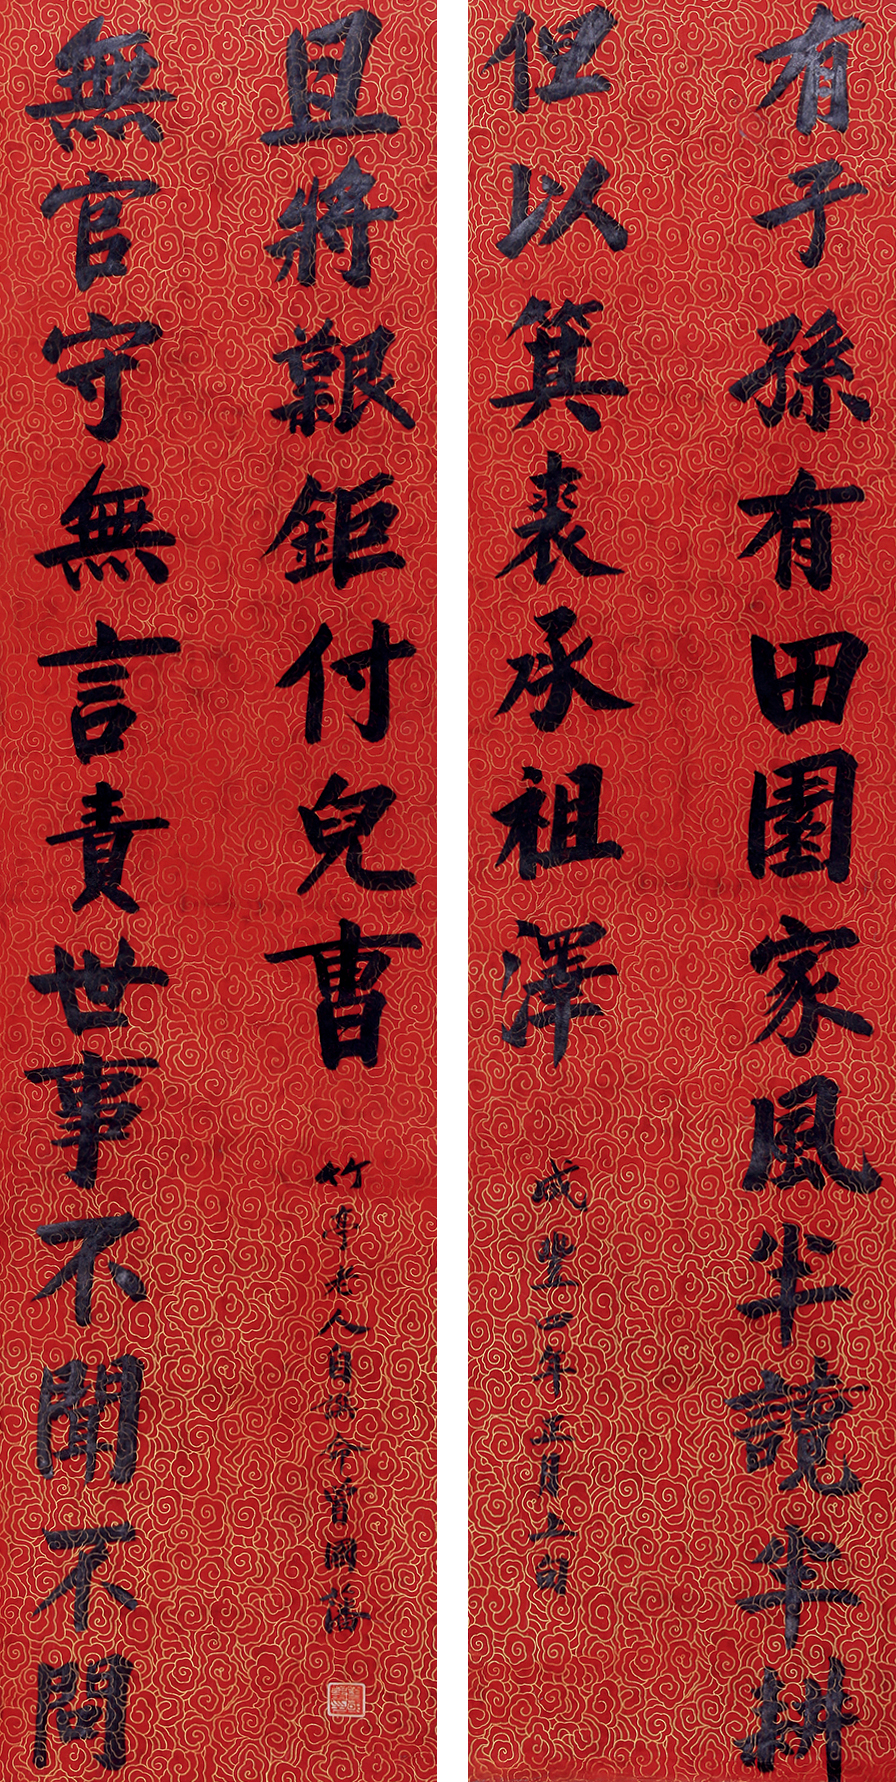 有子孫有田園家風半讀半耕
但以箕裘承祖澤
咸豐四年正月上
無官守無言責世事不聞不問
且將艱鉅付兒曺
竹亭老人自撰令曾國藩